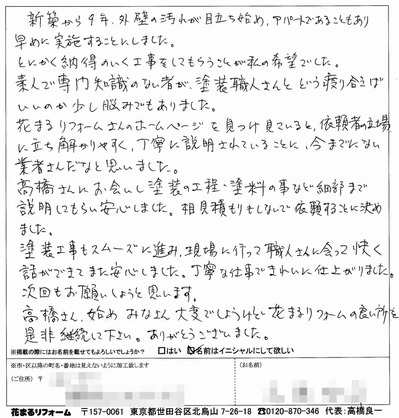 新築から9年、外壁の汚れが目立ち始め、アパートであることもあり
早めに実施することにしました。
とにかく納得のいく工事をしてもらうことが私の希望でした。
素人で専門知識のない者が、塗装職人さんとどう渡り合えば
いいのか少し悩みでもありました。
花まるリフォームさんのホームページを見つけ見ていると、依頼者の立場
に立ち解かりやすく、丁寧に説明されていることに、今までにない
業者さんだなと思いました。
高橋さんにお会いし塗装の工程・塗料の事など細部まで
説明してもらい安心しました。相見積もりもしないで依頼することに決め
ました。
塗装工事もスムーズに進み、現場に行って職人さんに会って快く
話ができてまた安心しました。丁寧な仕事できれいに仕上がりました。
次回もお願いしようと思います。
高橋さん、始め みなさん大変でしょうけれど花まるリフォームの良い所を
是非継続して下さい。ありがとうございました。
※掲載の際にはお名前を載せてもよろしいでしょうか? □はい ☑名前はイニシャルにして欲しい
※市・区以降の町名・番地は見えないように加工致します
(ご住所) 〒
(お名前)
花まるリフォーム 〒157-0061 東京都世田谷区北烏山 7-26-18 ☎0120-870-346 代表:高橋良一